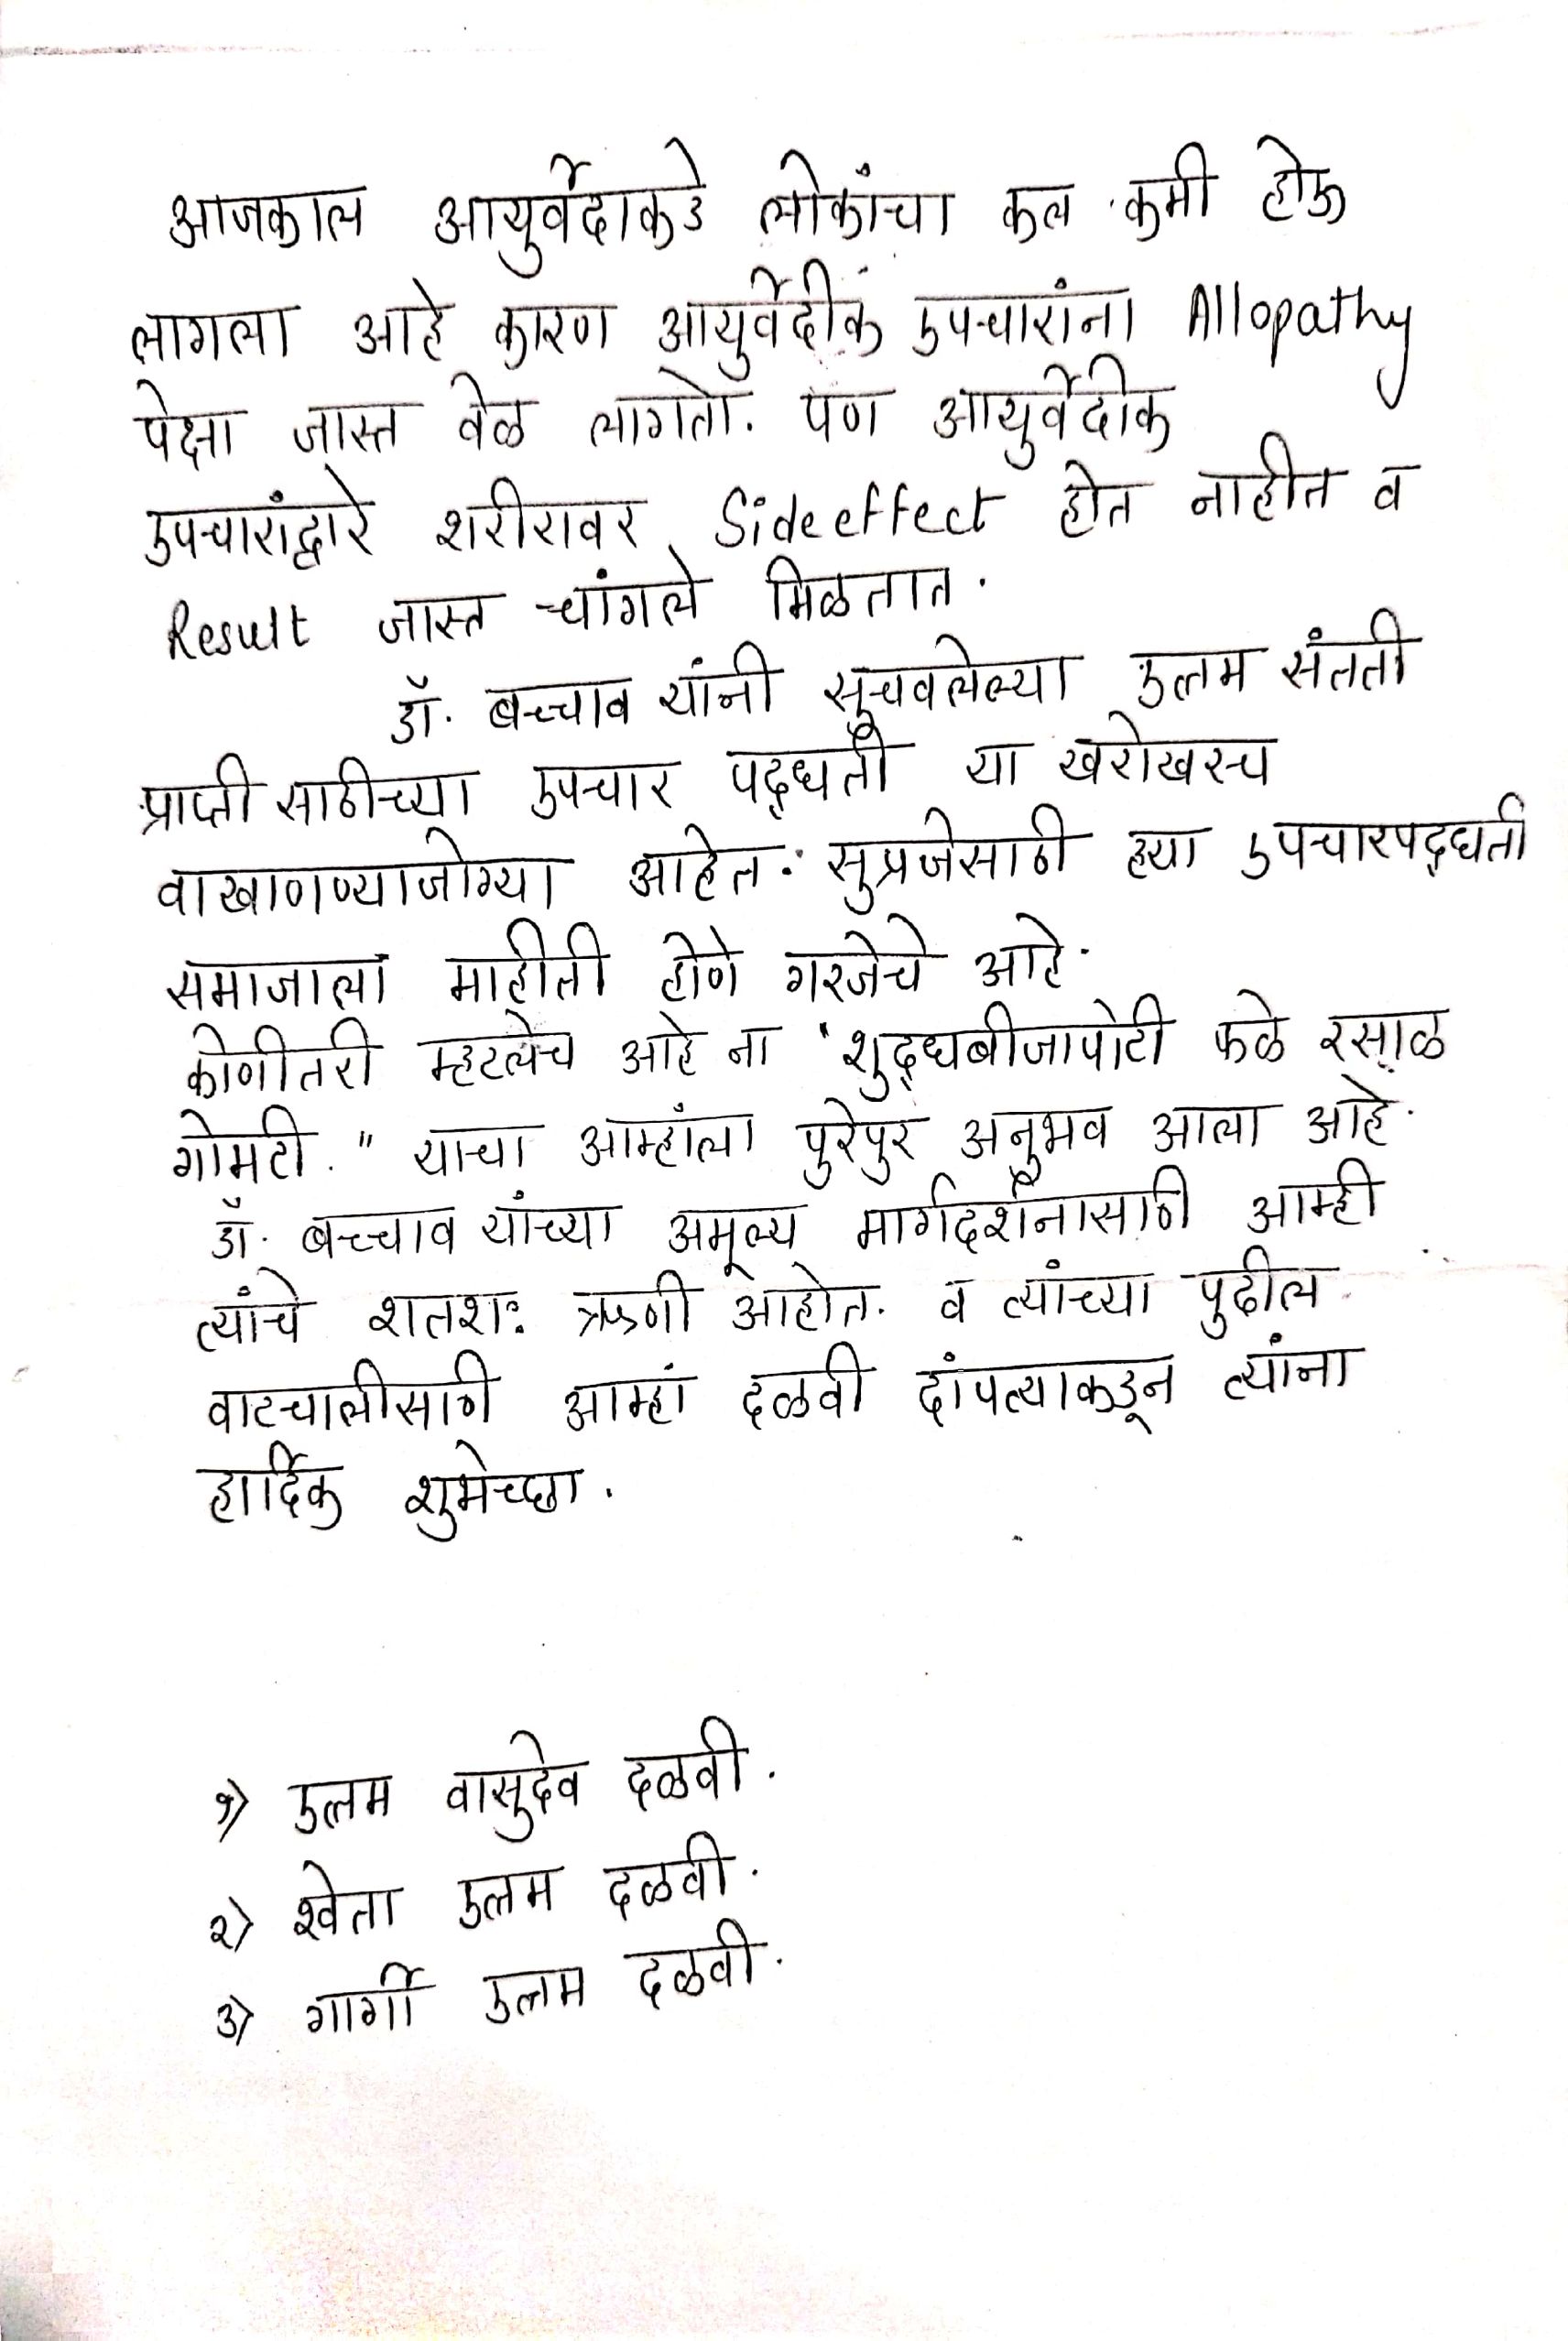 आजकाल आयुर्वेदाकडे लोकांचा कल कमी होऊ
लागला आहे कारण आयुर्वेदीक उपचारांना Allopathy
पेक्षा जास्त वेळ लागतो. पण आयुर्वेदीक
उपचारांद्वारे शरीरावर Sideeffect होत नाहीत व
Result जास्त चांगले मिळतात.
डॉ. बच्चाव यांनी सूचवलेल्या उत्तम संतती
प्राप्ती साठीच्या उपचार पद्धती या खरोखरच
वाखाणण्याजोग्या आहेत. सुप्रजेसाठी ह्या उपचारपद्धती
समाजाला माहीती होणे गरजेचे आहे.
कोणीतरी म्हटलेच आहे ना "शुद्धबीजापोटी फळे रसाळ
गोमटी." याचा आम्हांला पुरेपुर अनुभव आला आहे.
डॉ. बच्चाव यांच्या अमूल्य मार्गदर्शनासाठी आम्ही
त्यांचे शतशः ऋणी आहोत. व त्यांच्या पुढील
वाटचालीसाठी आम्हां दळवी दांपत्याकडून त्यांना
हार्दिक शुभेच्छा.
१) उत्तम वासुदेव दळवी.
२) श्वेता उत्तम दळवी.
३) गार्गी उत्तम दळवी.